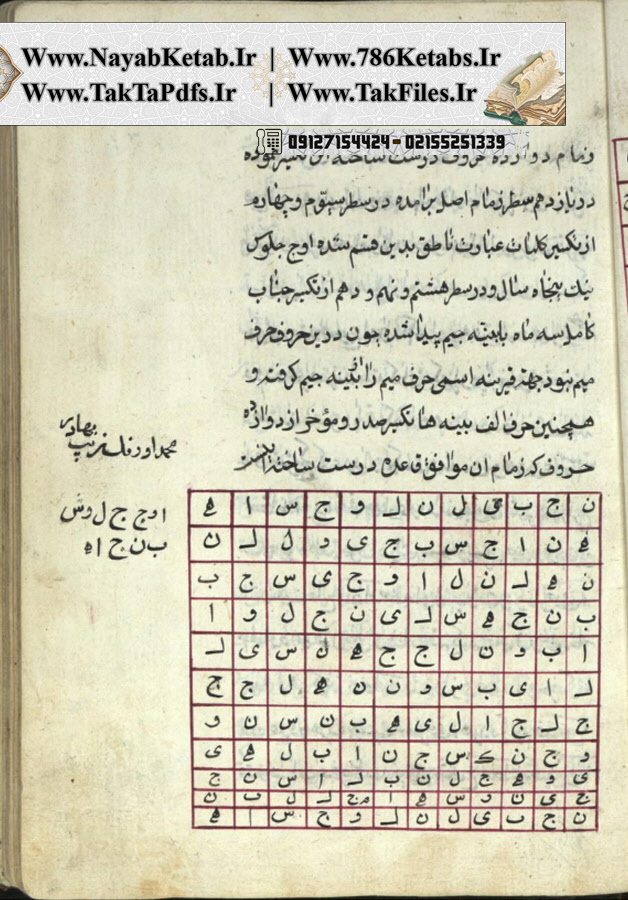 Www.NayabKetab.Ir | Www.786Ketabs.Ir
Www.TakTaPdfs.Ir | Www.TakFiles.Ir
09127154424 - 02155251339
زمام دوازده حروف درست ساخته این تکسیر نموده
در یازدهم سطر زمام اصل برآمده در سطر سیوم و چهارم
از تکسیر کلمات عبارت ناطق بدین قسم شده اوج جلوس
نیک پنجاه سال و در سطر هشتم و نهم و دهم از تکسیر جناب
کامل سه ماه بابینه جیم پیدا شده چون درین حروف حرف
میم نبود جهة قرینه اسمی حرف میم را بینه جیم گرفته و
همچنین حرف الف بینه ها تکسیر صدر و مؤخر از دوازده
حروف که زمام آن موافق قاعده درست ساخته اینست
محمد اورنک زیب بهادر
ا و ج ج ل و س
ب ن ج ا ه
ن ج ب ی ل ن ل و ج س ا ه
ه ن ا ج س ب ج ی و ل ل ن
ن ه ل ن ل ا و ج ی س ج ب
ب ن ج ه س ل ی ن ج ل و ا
ا ب و ن ل ج ج ه ن س ی ل
ل ا ی ب س و ن ن ه ل ج ج
ج ل ج ا ل ی ه ب ن س ن و
و ج ن ک س ج ن ا ب ل ه ی
ی و ه ج ل ن ب ل ا س ن ج
ج ی ن و س ه ا ج ل ل ب ن
ن ج ب ی ل ن ل و ج س ا ه